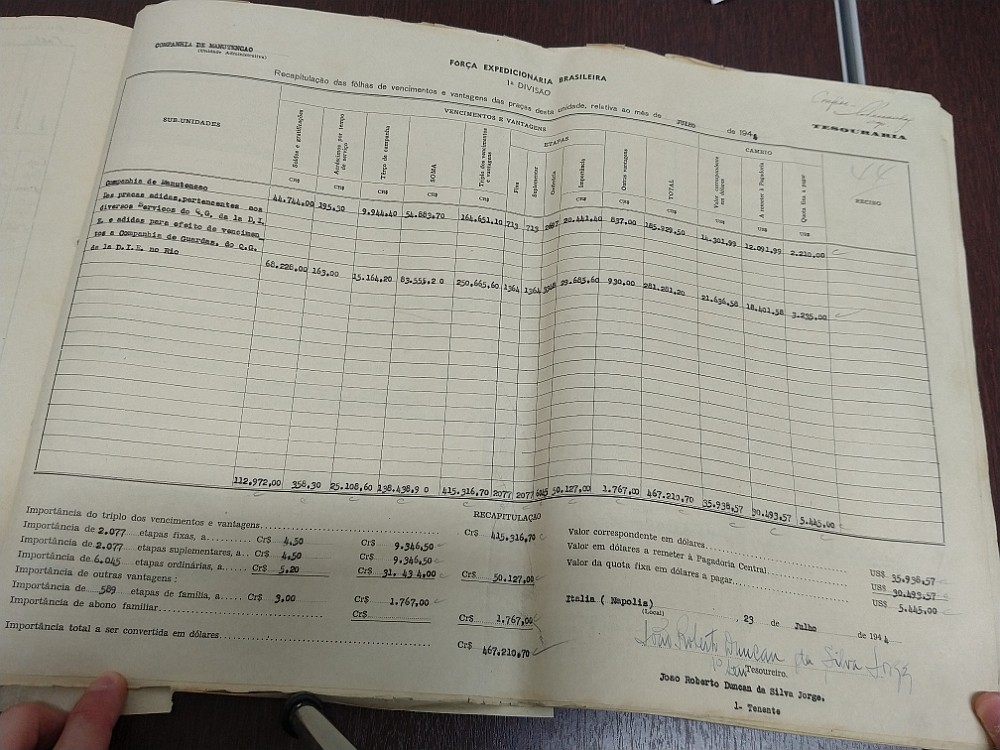 COMPANHIA DE MANUTENCAO
(Unidade Administrativa)
FÔRÇA EXPEDICIONÁRIA BRASILEIRA
1ª DIVISÃO
Recapitulação das fôlhas de vencimentos e vantagens das praças desta unidade, relativa ao mês de JULHO de 1944
TESOURARIA
SUB-UNIDADES
VENCIMENTOS E VANTAGENS
ETAPAS
CAMBIO
RECIBO
44
Soldos e gratificações
Acréscimos por tempo de serviço
Têrço de campanha
SOMA
Triplo dos vencimentos e vantagens
Fixa
Suplementar
Ordinária
Importância
Outras vantagens
TOTAL
Valor correspondente em dólares
A remeter à Pagadoria
Quota fixa a pagar
CR$ CR$ CR$ CR$ CR$ CR$ CR$ CR$ US$ US$ US$
Companhia de Manutencao 44.744,00 195,30 9.944,40 54.883,70 164.651,10 713 713 20.441,40 837,00 185.929,50 14.301,99 12.091,99 2.210,00
Das pracas adidas,pertencentes aos
diversos Servicos do Q.G. da 1a D.I.
E. e adidas para efeito de vencimen-
tos a Companhia de Guardas, do Q.G.
da 1a D.I.E. no Rio 68.228,00 163,00 15.164,20 83.555,20 250.665,60 1364 1364 29.685,60 930,00 281.281,20 21.636,58 18.401,58 3.235,00
112.972,00 358,30 25.108,60 138.438,90 415.316,70 2077 2077 6045 50.127,00 1.767,00 467.210,70 35.938,57 30.493,57 5.445,00
RECAPITULAÇÃO
Importância do triplo dos vencimentos e vantagens Cr$ 415.316,70
Importância de 2.077 etapas fixas, a Cr$ 4,50 Cr$ 9.346,50
Importância de 2.077 etapas suplementares, a Cr$ 4,50 Cr$ 9.346,50
Importância de 6.045 etapas ordinárias, a Cr$ 5,20 Cr$ 31.434,00 Cr$ 50.127,00
Importância de outras vantagens:
Importância de 589 etapas de família, a Cr$ 3,00 Cr$ 1.767,00
Importância de abono familiar Cr$ Cr$ 1.767,00
Importância total a ser convertida em dólares Cr$ 467.210,70
Valor correspondente em dólares US$ 35.938,57
Valor em dólares a remeter à Pagadoria Central US$ 30.493,57
Valor da quota fixa em dólares a pagar US$ 5.445,00
Italia ( Napolis), 23 de Julho de 1944
(Local)
João Roberto Duncan da Silva Jorge
1º Ten
Tesoureiro.
Joao Roberto Duncan da Silva Jorge.
1- Tenente